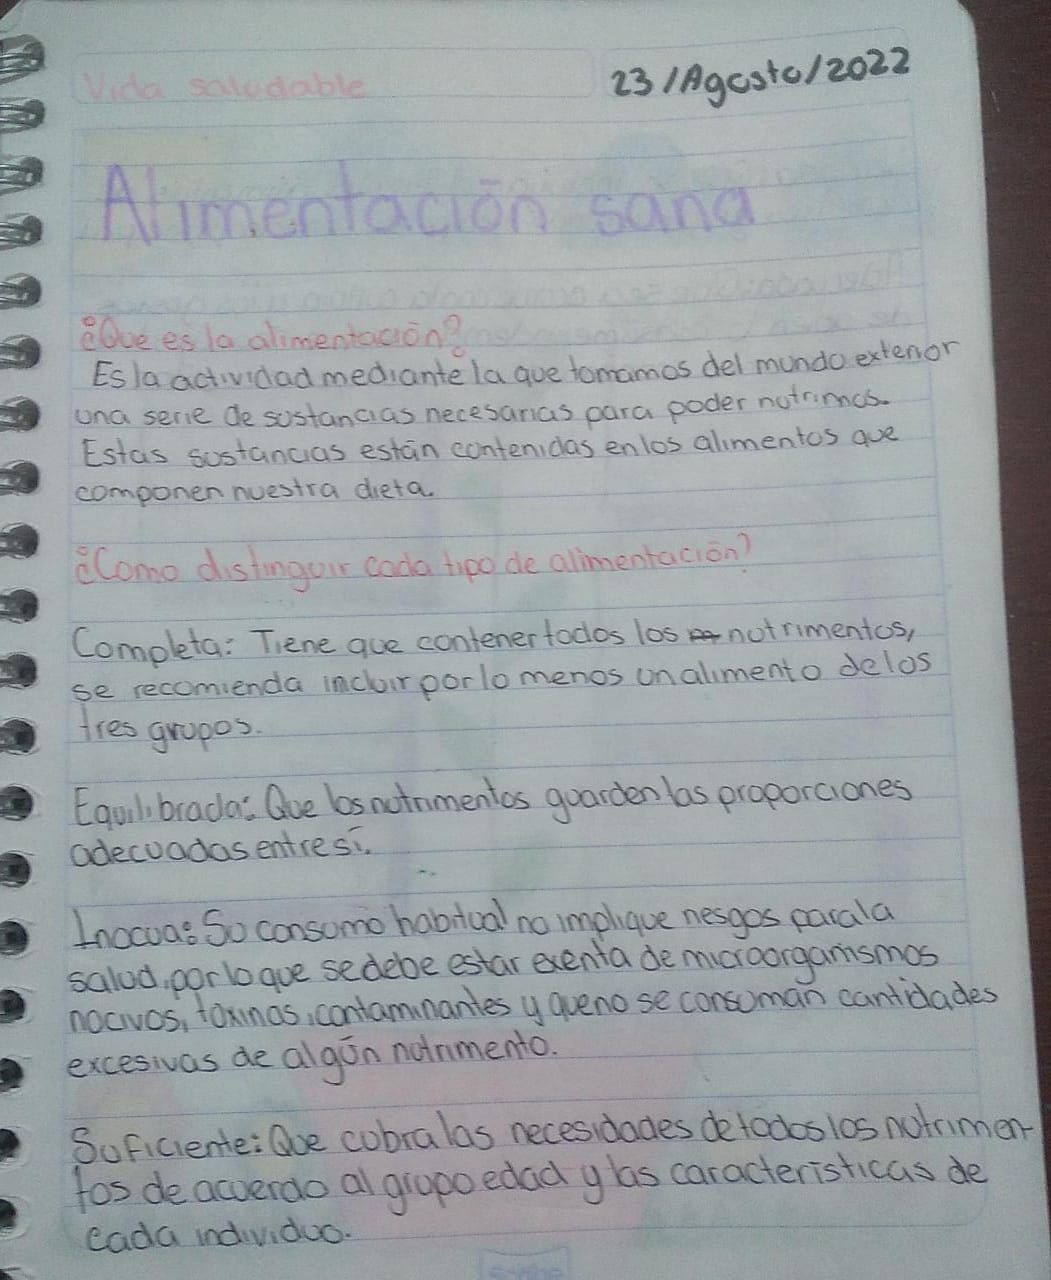 Vida saludable
23/Agosto/2022
Alimentación sana
¿Que es la alimentación?
Es la actividad mediante la que tomamos del mundo exterior
una serie de sustancias necesarias para poder nutrirnos.
Estas sustancias están contenidas en los alimentos que
componen nuestra dieta.
¿Como distinguir cada tipo de alimentación?
Completa: Tiene que contener todos los nutrimentos,
se recomienda incluir por lo menos un alimento de los
tres grupos.
Equilibrada: Que los nutrimentos guarden las proporciones
adecuadas entre sí.
Inocua: Su consumo habitual no implique riesgos para la
salud, por lo que se debe estar exenta de microorganismos
nocivos, toxinas, contaminantes y que no se consuman cantidades
excesivas de algún nutrimento.
Suficiente: Que cobra las necesidades de todos los nutrimen-
tos de acuerdo al grupo edad y las características de
cada individuo.